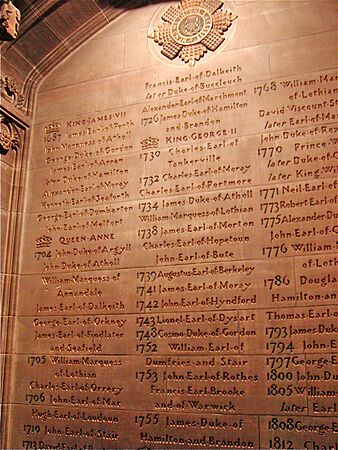 KING·JAMES·VII
1687 James·Earl·of·Perth
John·Marquess·of·Atholl
George·Duke·of·Gordon
James·Earl·of·Arran
John·Duke·of·Hamilton
Alexander·Earl·of·Moray
Kenneth·Earl·of·Seaforth
George·Earl·of·Dumbarton
John·Earl·of·Melfort
QUEEN·ANNE
1704 John·Duke·of·Argyll
John·Duke·of·Atholl
William·Marquess·of
Annandale
James·Earl·of·Dalkeith
George·Earl·of·Orkney
James·Earl·of·Findlater
and of Seafield
1705 William·Marquess
of·Lothian
Charles·Earl·of·Orrery
1706 John·Earl·of·Mar
Hugh·Earl·of·Loudoun
1710 John·Earl·of·Stair
1713 David·Earl·of
Francis·Earl·of·Dalkeith
later Duke·of·Buccleuch
Alexander·Earl·of·Marchmont
1726 James·Duke·of·Hamilton
and·Brandon
KING·GEORGE·II
1730 Charles·Earl·of
Tankerville
1732 Charles·Earl·of·Moray
Charles·Earl·of·Portmore
1734 James·Duke·of·Atholl
William·Marquess·of·Lothian
1738 James·Earl·of·Morton
Charles·Earl·of·Hopetoun
John·Earl·of·Bute
1739 Augustus·Earl·of·Berkeley
1741 James·Earl·of·Moray
1742 John·Earl·of·Hyndford
1743 Lionel·Earl·of·Dysart
1748 Cosmo·Duke·of·Gordon
1752 William·Earl·of
Dumfries·and·Stair
1753 John·Earl·of·Rothes
Francis·Earl·Brooke
and·of·Warwick
1755 James·Duke·of
Hamilton·and·Brandon
1768 William·Mar
of·Lothian
David·Viscount·St
later Earl·of·Ma
John·Duke·of·Ro
1770 Prince·W
later Duke·o
later King·W
1771 Neil·Earl·of
1773 Robert·Earl·of
1775 Alexander·Du
John·Earl·of·G
1776 William·M
of·Loth
1786 Dougla
Hamilton·an
Thomas·Earl·of
1793 James·Duke
1794 John·E
1797 George·E
1800 John·Du
1805 William
later Earl
1808 George·E
1812 Char